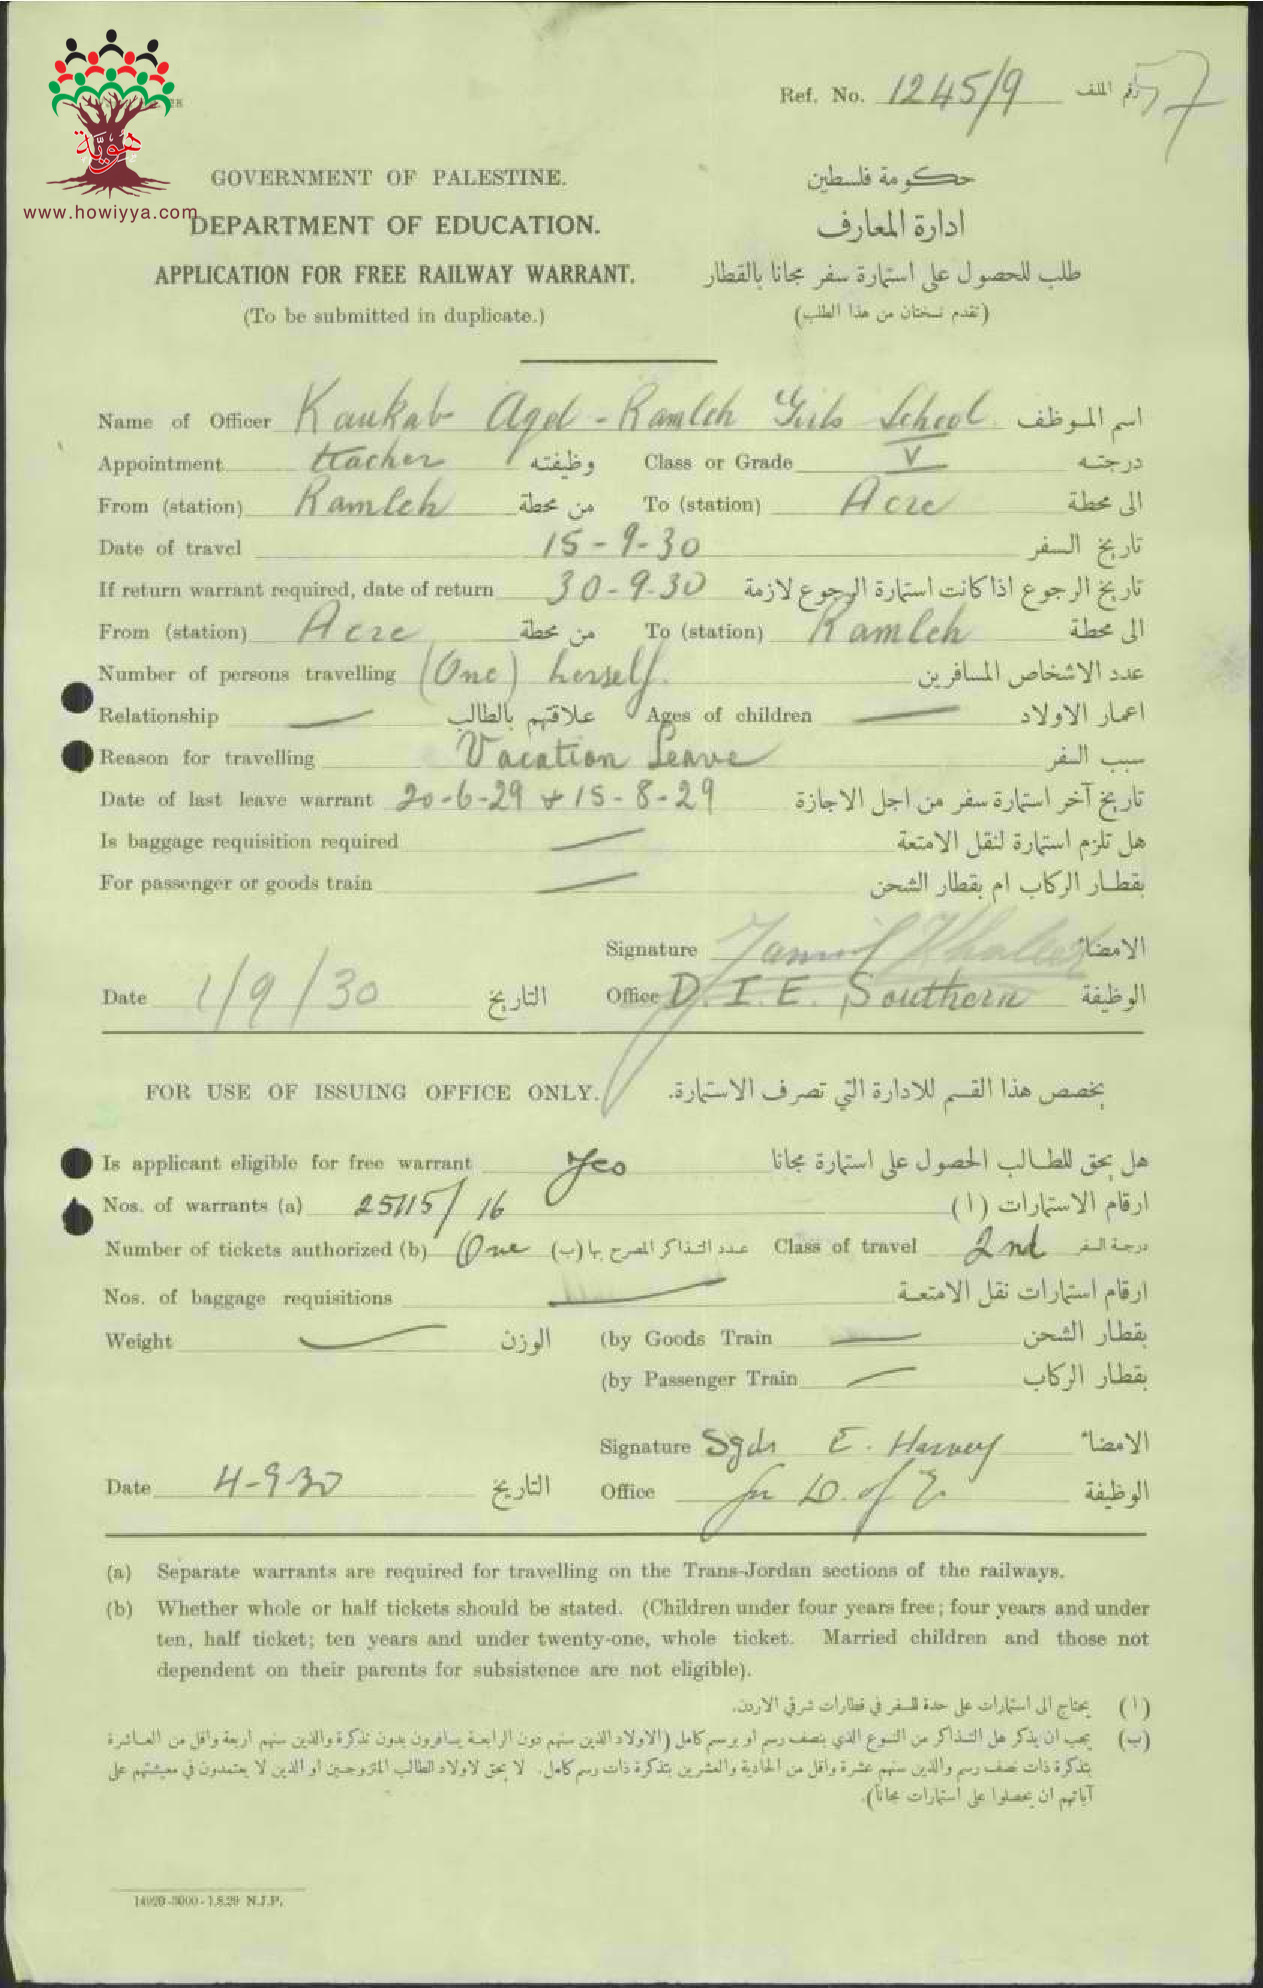 هوية
www.howiyya.com
Ref. No. 1245/9 رقم الملف
57
GOVERNMENT OF PALESTINE. حكومة فلسطين
DEPARTMENT OF EDUCATION. ادارة المعارف
APPLICATION FOR FREE RAILWAY WARRANT. طلب للحصول على استمارة سفر مجانا بالقطار
(To be submitted in duplicate.) (تقدم نسختان من هذا الطلب)
Name of Officer Kaukab Aqel - Ramleh Girls School. اسم الموظف
Appointment teacher وظيفته Class or Grade V درجته
From (station) Ramleh من محطة To (station) Acre الى محطة
Date of travel 15-9-30 تاريخ السفر
If return warrant required, date of return 30-9-30 تاريخ الرجوع اذا كانت استمارة الرجوع لازمة
From (station) Acre من محطة To (station) Ramleh الى محطة
Number of persons travelling (One) herself. عدد الاشخاص المسافرين
Relationship — علاقتهم بالطالب Ages of children — اعمار الاولاد
Reason for travelling Vacation Leave سبب السفر
Date of last leave warrant 20-6-29 & 15-8-29 تاريخ آخر استمارة سفر من اجل الاجازة
Is baggage requisition required — هل تلزم استمارة لنقل الامتعة
For passenger or goods train — بقطار الركاب ام بقطار الشحن
Signature الامضاء
Date 1/9/30 التاريخ Office D. I. E. Southern الوظيفة
FOR USE OF ISSUING OFFICE ONLY. يخصص هذا القسم للادارة التي تصرف الاستمارة.
Is applicant eligible for free warrant Yes هل يحق للطالب الحصول على استمارة مجانا
Nos. of warrants (a) 25115/16 ارقام الاستمارات (ا)
Number of tickets authorized (b) One عدد التذاكر المصرح بها (ب) Class of travel 2nd درجة السفر
Nos. of baggage requisitions — ارقام استمارات نقل الامتعة
Weight — الوزن (by Goods Train — بقطار الشحن
(by Passenger Train — بقطار الركاب
Signature Sgd. E. Harvey الامضاء
Date 4-9-30 التاريخ Office for D. of E. الوظيفة
(a) Separate warrants are required for travelling on the Trans-Jordan sections of the railways.
(b) Whether whole or half tickets should be stated. (Children under four years free; four years and under
ten, half ticket; ten years and under twenty-one, whole ticket. Married children and those not
dependent on their parents for subsistence are not eligible).
(ا) يحتاج الى استمارات على حدة للسفر في قطارات شرقي الاردن.
(ب) يجب ان يذكر هل التذاكر من النوع الذي بنصف رسم او برسم كامل (الاولاد الذين سنهم دون الرابعة يسافرون بدون تذكرة والذين سنهم اربعة واقل من العاشرة
بتذكرة ذات نصف رسم والذين سنهم عشرة واقل من الحادية والعشرين بتذكرة ذات رسم كامل. لا يحق لاولاد الطالب المتزوجين او الذين لا يعتمدون في معيشتهم على
آبائهم ان يحصلوا على استمارات مجانا).
14920-3000-1.8.29 N.J.P.